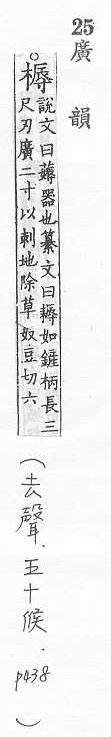 25
廣韻
○槈說文曰薅器也纂文曰耨如鏟柄長三
尺刃廣二寸以刺地除草奴豆切六
(去聲.五十候.p438)